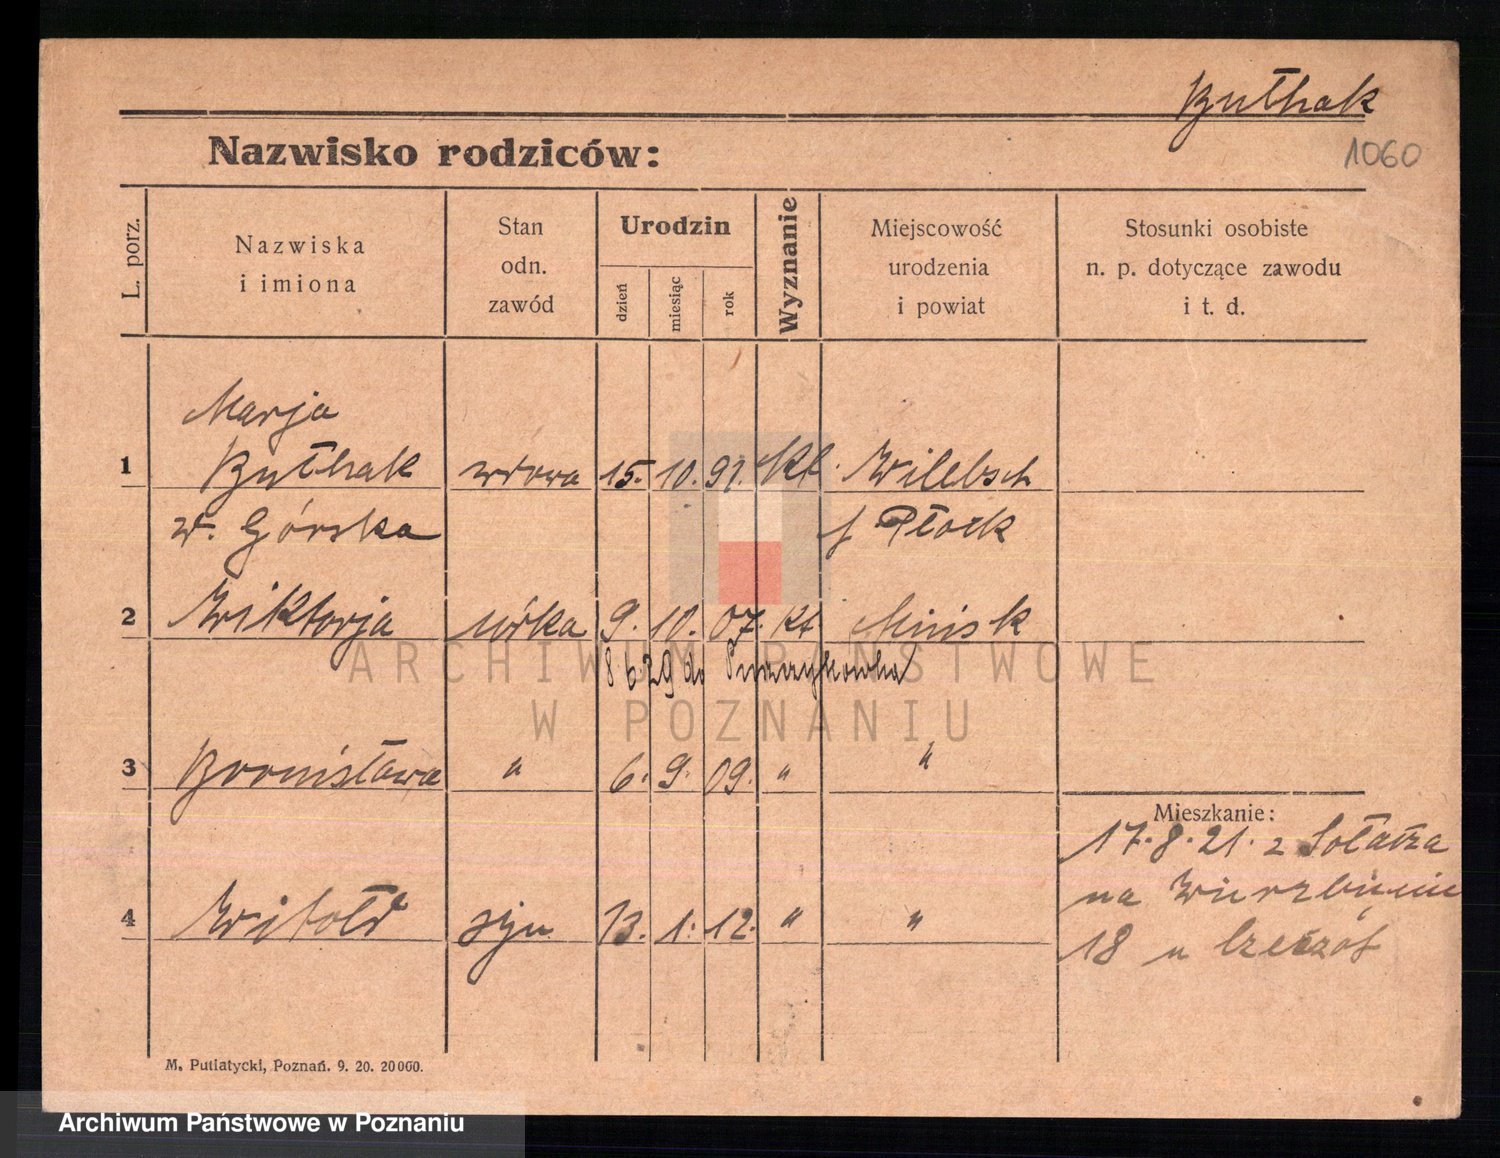 Bułhak
1060
Nazwisko rodziców:
L. porz.
Nazwiska
i imiona
Stan
odn.
zawód
Urodzin
dzień
miesiąc
rok
Wyznanie
Miejscowość
urodzenia
i powiat
Stosunki osobiste
n. p. dotyczące zawodu
i t. d.
Marja
1 Bułhak wdowa 15. 10. 91. kt.
z d. Górska Płock
2 Wiktorja córka 9. 10. 07. kt Mińsk
8 6 29 do Puszczykowka
ARCHIWUM PAŃSTWOWE
W POZNANIU
3 Bronisława " 6. 9. 09. " "
Mieszkanie:
17.8.21. z Sołacza
4 Witold syn 13. 1. 12. " "
na Wierzbięcin
18 u
M. Putiatycki, Poznań. 9. 20. 20000.
Archiwum Państwowe w Poznaniu